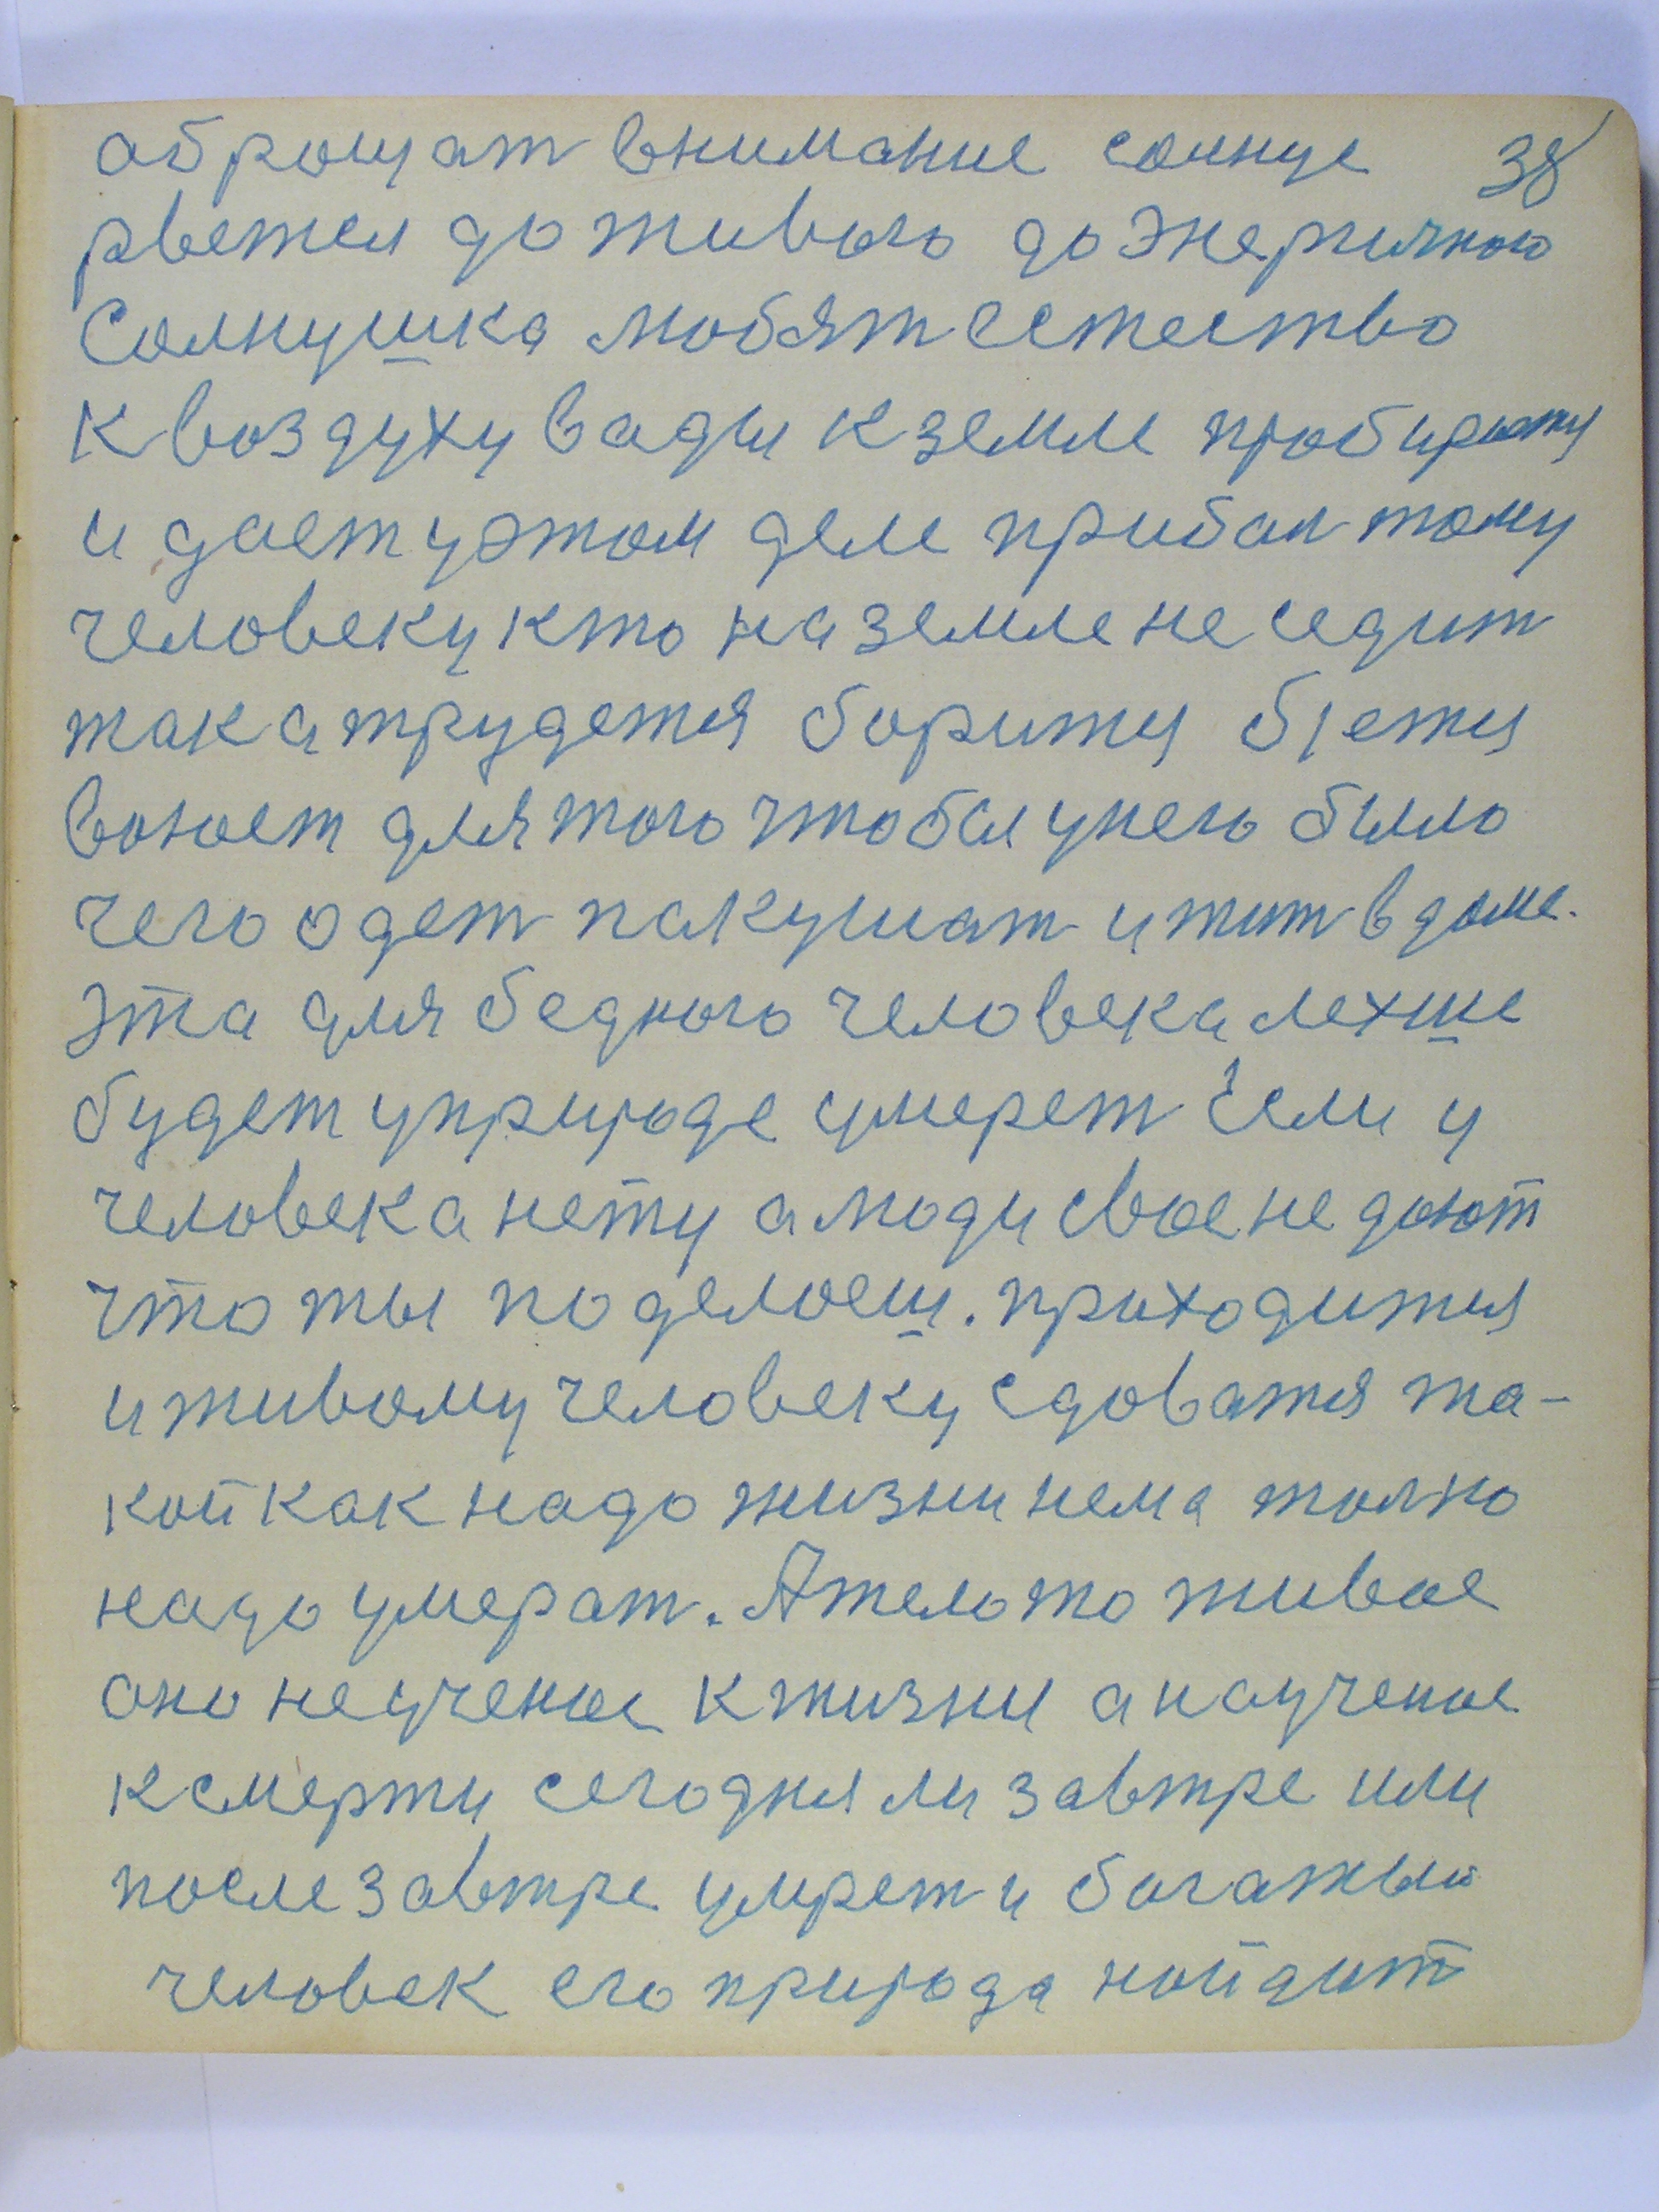 оброщат внимание сонце 38
рвется до живого до Энергичного
Солнушка любят естество
к воздуху вады к земле пробирются
и дает у этом деле прибал тому
человеку кто на земле не седит
так а трудется боритя бьется
воюет для того чтобы у него было
чего одет пакушат и жит в доме.
Эта для бедного человека лехше
будет у природе умерет Если у
человека нету а люди свое не дают
что ты поделоеш. приходится
и живому человеку сдоватся та-
кой как надо жизни нема толко
надо умерат. А тело то живое
оно не ученое к жизни а научение
к смерти сегодня ли завтре или
после завтре умрет и богатый
человек его природа нойдит